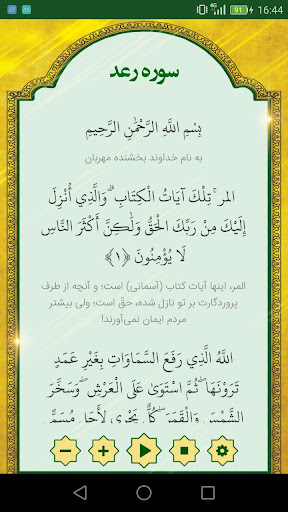 91 16:44
سوره رعد
بِسْمِ اللَّهِ الرَّحْمَٰنِ الرَّحِيمِ
به نام خداوند بخشنده مهربان
المر ۚ تِلْكَ آيَاتُ الْكِتَابِ ۗ وَالَّذِي أُنْزِلَ
إِلَيْكَ مِنْ رَبِّكَ الْحَقُّ وَلَٰكِنَّ أَكْثَرَ النَّاسِ
لَا يُؤْمِنُونَ ﴿١﴾
المر، اینها آیات کتاب (آسمانی) است؛ و آنچه از طرف
پروردگارت بر تو نازل شده، حقّ است؛ ولی بیشتر
مردم ایمان نمی‌آورند!
اللَّهُ الَّذِي رَفَعَ السَّمَاوَاتِ بِغَيْرِ عَمَدٍ
تَرَوْنَهَا ۖ ثُمَّ اسْتَوَىٰ عَلَى الْعَرْشِ ۖ وَسَخَّرَ
الشَّمْسَ وَالْقَمَرَ ۖ كُلٌّ يَجْرِي لِأَجَلٍ مُسَمًّى